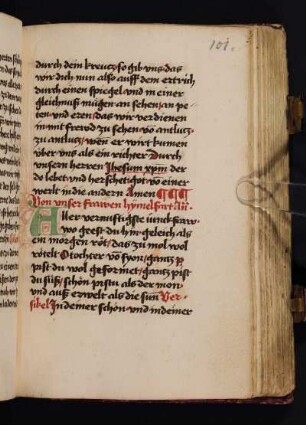 101.
durch dein kreutz so gib vns das
wir dich nun also auff dem ertrich
durch einen spiegel vnd in einer
gleichnuß mügen an sehen an pe-
ten vnd eren das wir verdienen
in mit frewd zu sehen võ antlutz
zu antlutz wen er wirt kumen
über uns als ein richter Durch
unsern herren Jhesum xpm der
do lebet vnd herschet got võ einer
werlt in die andern Amen
Von unser frawen hymelfart Añ
Aller vernunftigste iunckfraw
wo gestu hin gleich als
ein morgen röt das zu mol wol
rötelt O tochter võ syon gantz
pist du wol geformet gantz pist
du süß schön pistu als der mon
vnd auß erwelt als die sun Ver-
sikel In deiner schön vnd in deiner